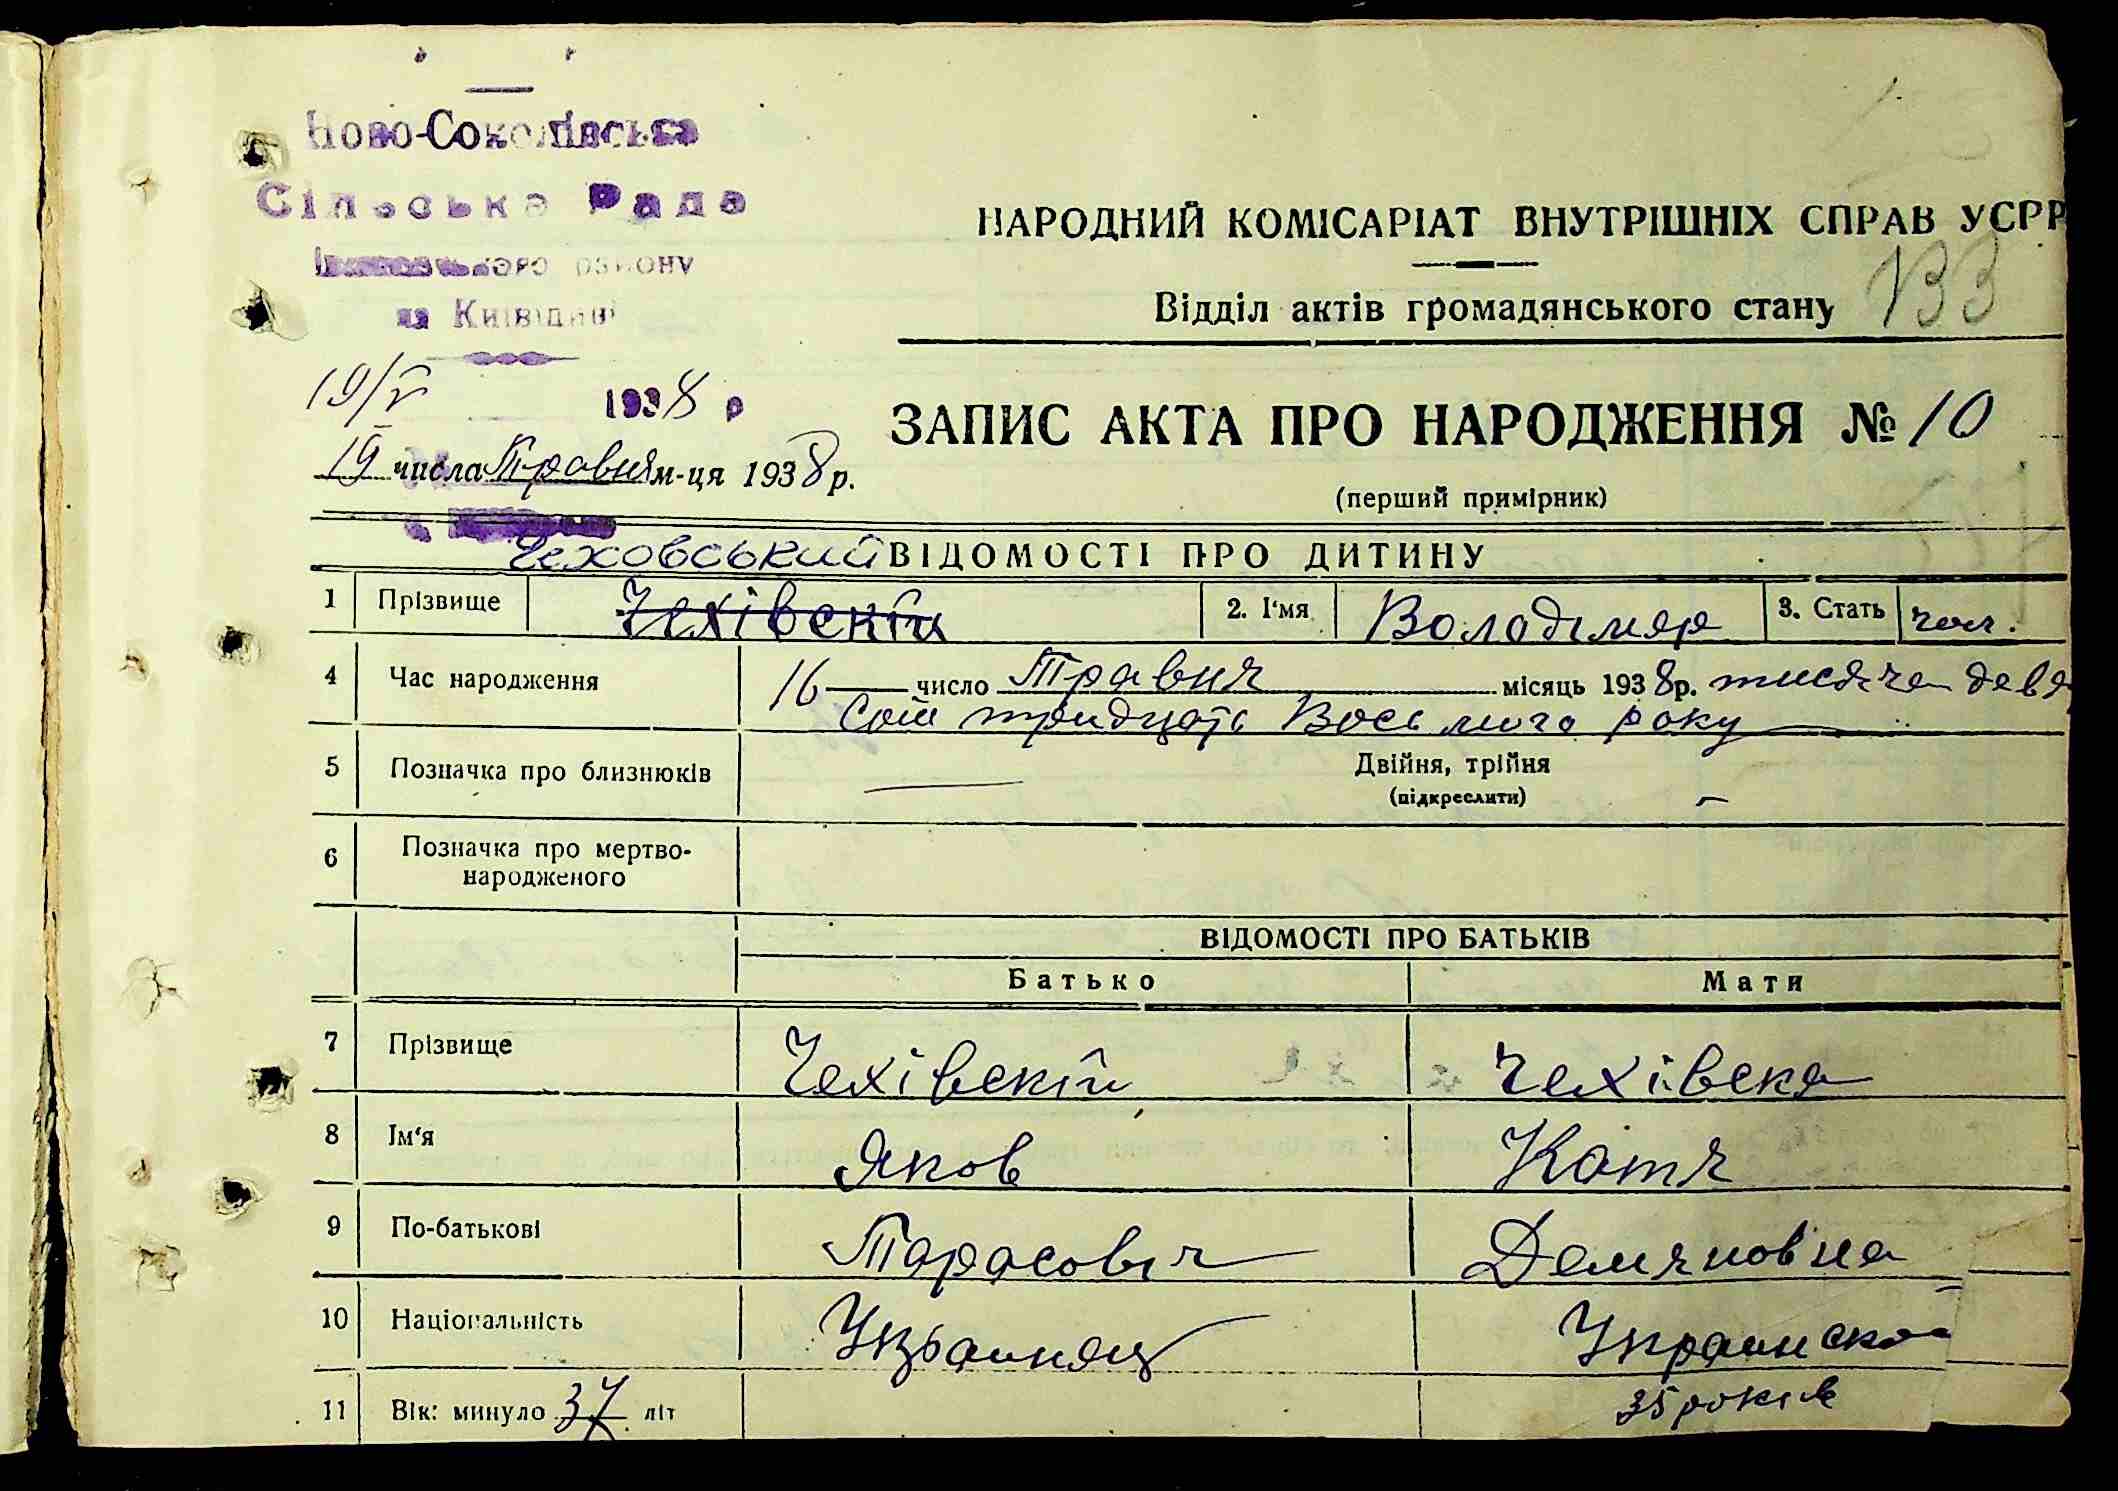 Ново-Соколівська
Сільська Рада
району
на Київщині
19/V 1938 р
НАРОДНИЙ КОМІСАРІАТ ВНУТРІШНІХ СПРАВ УСРР
Відділ актів громадянського стану 133
ЗАПИС АКТА ПРО НАРОДЖЕННЯ № 10
19 числа Травня м-ця 1938 р.
(перший примірник)
Чеховський ВІДОМОСТІ ПРО ДИТИНУ
1 Прізвище Чехівскій 2. І'мя Володімер 3. Стать чол.
4 Час народження 16 число Травня місяць 1938 р. тисяча девя
сот тридцать Восьмого року
5 Позначка про близнюків — Двійня, трійня
(підкреслити)
6 Позначка про мертво-
народженого
ВІДОМОСТІ ПРО БАТЬКІВ
Батько Мати
7 Прізвище Чехівскій Чехівска
8 Ім'я Яков Катя
9 По-батькові Тарасовіч Демяновна
10 Національність Украинец Украинска
11 Вік: минуло 37 літ 35 років